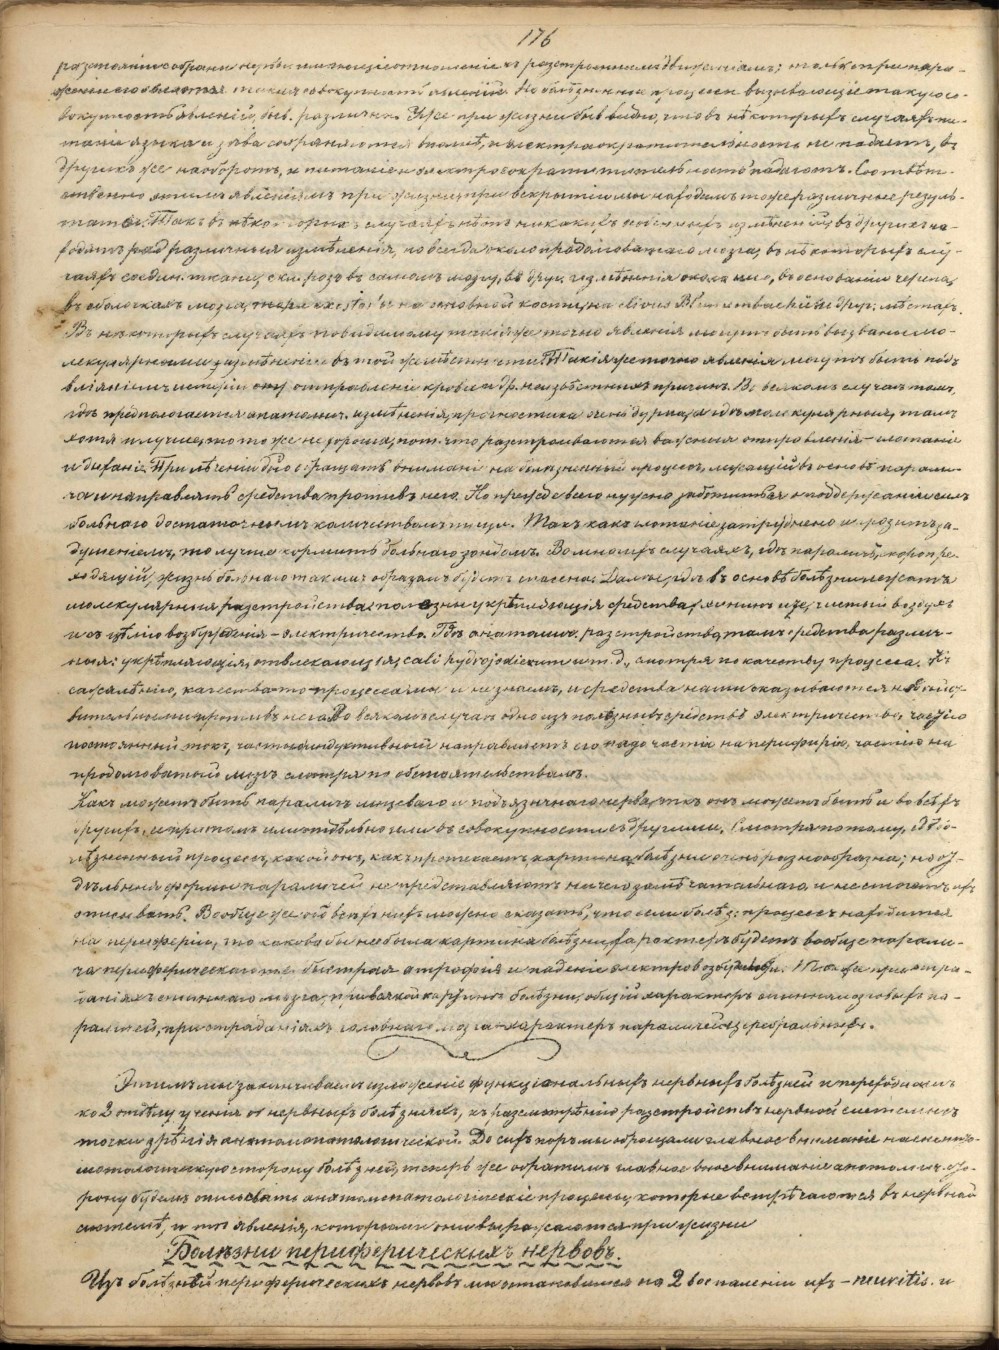 176
разстоянии собраны нервы имеющіе отношеніе къ разстроеннымъ движеніямъ; только при пора-
женіи его является такая совокупность явленій. Но болѣзненные процессы вызывающіе такую со-
вокупность явленій, быв. различны. Уже при жизни быв. видно, что въ нѣкоторыхъ случаяхъ пи-
таніе языка и зѣва сохраняются вполнѣ, и электросократительность не падаетъ, въ
другихъ же наоборотъ, и питаніе и электросократительность падаютъ. Соотвѣт-
ственно этимъ явленіямъ при жизни, при вскрытіи мы находимъ тоже различные резуль-
таты. Такъ въ нѣкоторыхъ случаяхъ нѣтъ никакихъ измѣненій, въ другихъ на-
ходятъ ряд различныя измѣненія, но всегда около продолговатаго мозга, въ нѣкоторыхъ слу-
чаяхъ соедин. ткани, склерозъ въ самомъ мозгу, въ друг. измѣненія около него, въ основаніи черепа,
въ оболочкахъ мозга, на основной кости, на clivus Blumenbachii и друг. мѣстахъ.
Въ нѣкоторыхъ случаяхъ повидимому такія же точно явленія могутъ быть вызваны мо-
лекулярными измѣненіями въ той же мѣстности. Такія же точно явленія могутъ быть подъ
вліяніемъ истеріи, отравленія крови и др. неизвѣстныхъ причинъ. Во всякомъ случаѣ тамъ,
гдѣ предполагается анатомич. измѣненія, прогностика очень дурная, а гдѣ молекулярныя, тамъ
хотя и лучше, но тоже не хороша, пот. что разстраиваются важныя отправленія - глотаніе
и дыханіе. При лѣченіи надо обращать вниманіе на болѣзненный процессъ, лежащій въ основѣ парали-
ча и направлять средства противъ него. Но прежде всего нужно заботиться о поддержаніи силъ
больнаго достаточнымъ количествомъ пищи. Такъ какъ глотаніе затруднено и грозитъ за-
душеніемъ, то лучше кормить больнаго зондомъ. Во многихъ случаяхъ, гдѣ параличъ скоропре-
ходящій, жизнь больнаго такимъ образомъ будетъ спасена. Далѣе, гдѣ въ основѣ болѣзни лежатъ
молекулярныя разстройства, полезны укрѣпляющія средства, чистый воздухъ
и съ цѣлію возбужденія - электричество. Гдѣ анатомич. разстройства, тамъ средства различ-
ныя: укрѣпляющія, отвлекающія, cali hydrojodicum и т. д., смотря по качеству процесса. Къ
сожалѣнію, качества-то процесса мы и не знаемъ, и средства наши оказываются недѣйст-
вительными противъ него. Во всякомъ случаѣ одно изъ полезныхъ средствъ электричество, частію
постоянный токъ, частію индуктивный направляютъ его надо частію на периферію, частію на
продолговатый мозгъ смотря по обстоятельствамъ.
Какъ можетъ быть параличъ лицеваго и подъязычнаго нерва, такъ онъ можетъ быть и во всѣхъ
другихъ, и притомъ или отдѣльно или въ совокупности съ другими. Смотря потому, гдѣ бо-
лѣзненный процессъ, какой онъ, какъ протекаетъ, картина болѣзни очень разнообразна; но от-
дѣльныя формы параличей не представляютъ ничего замѣчательнаго и не стоитъ ихъ
описывать. Вообще же обо всѣхъ нихъ можно сказать, что если болѣз. процессъ находится
на периферіи, то какова бы не была картина болѣзни, характеръ будетъ вообще парали-
ча периферическаго т.е. быстрая атрофія и паденіе электровозбудимости. Тогда при стра-
даніяхъ спиннаго мозга, при всякой картинѣ болѣзни, общій характеръ спинномозговыхъ па-
раличей, при страданіяхъ головнаго мозга - характеръ параличей церебральныхъ.
Этимъ мы заканчиваемъ изложеніе функціональныхъ нервныхъ болѣзней и переходимъ
ко 2 отдѣлу ученія о нервныхъ болѣзняхъ, къ разсмотрѣнію разстройствъ нервной системы съ
точки зрѣнія анатомопатологической. До сихъ поръ мы обращали главное вниманіе на симпто-
матологическую сторону болѣзней, теперь же обратимъ главное свое вниманіе анатомич. сто-
рону будемъ описывать анатомопатологическіе процессы, которые встрѣчаются въ нервной
системѣ, и тѣ явленія, которыми они выражаются при жизни
Болѣзни периферическихъ нервовъ.
Изъ болѣзней периферическихъ нервовъ мы остановимся на 2 воспаленіи ихъ - neuritis. и